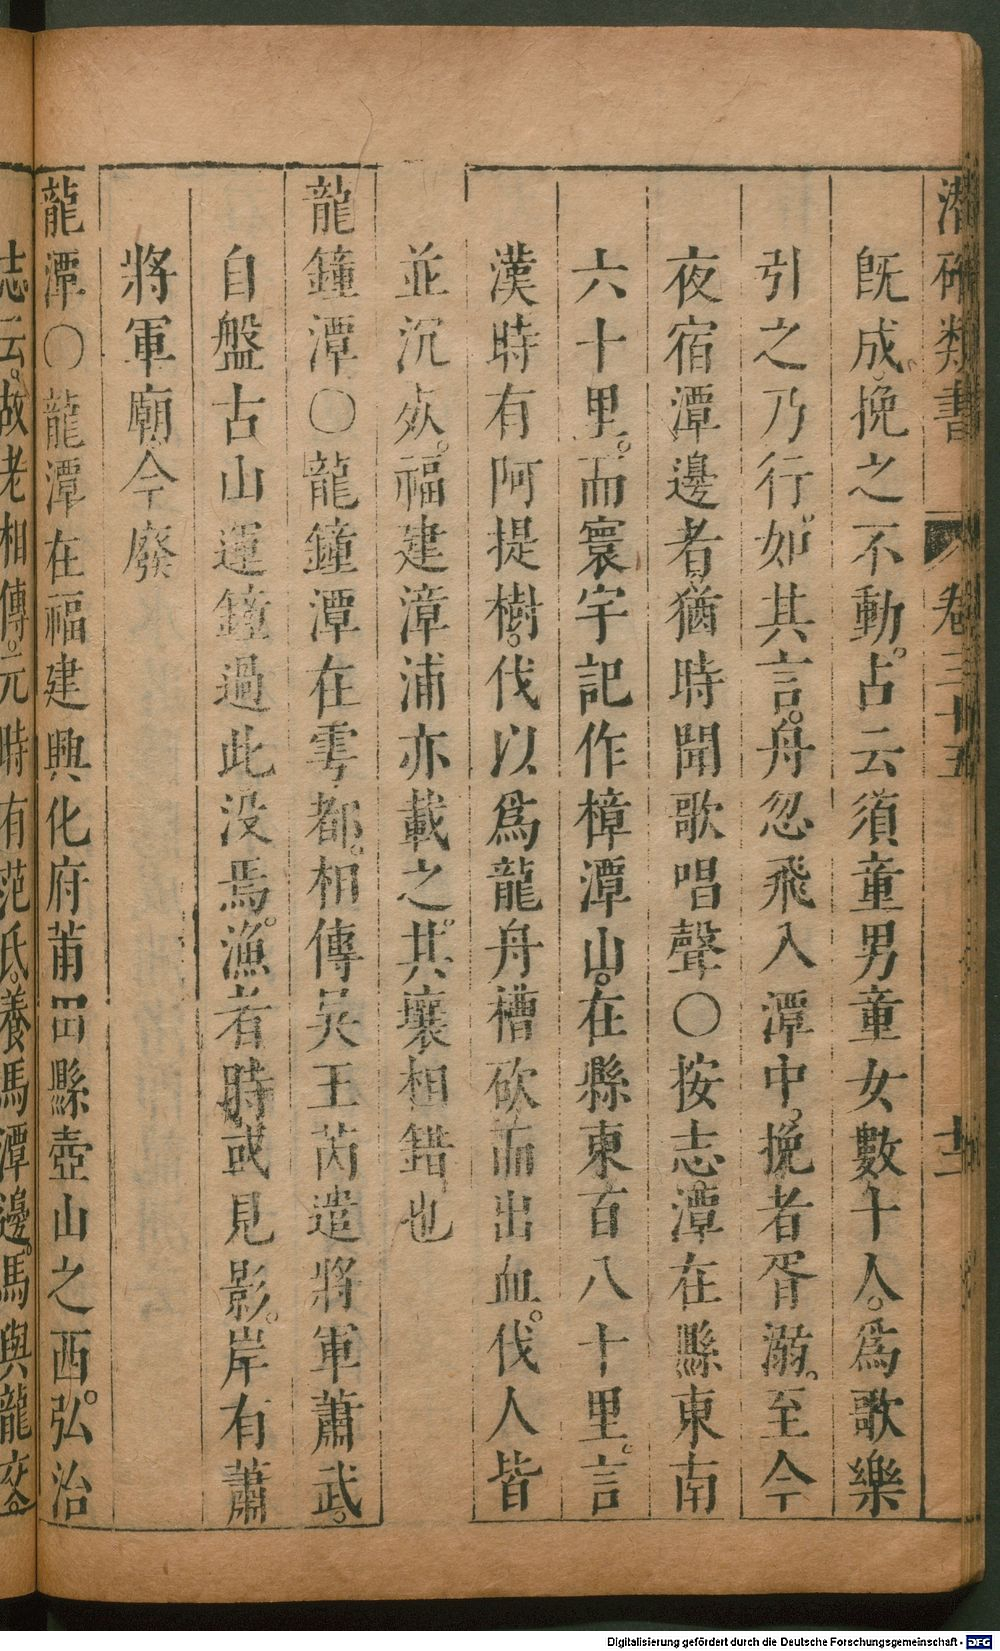 潛確類書 卷三十五 十二
旣成。挽之不動。占云須童男童女數十人。爲歌樂
引之乃行。如其言。舟忽飛入潭中。挽者胥溺。至今
夜宿潭邊者。猶時聞歌唱聲〇按志潭在縣東南
六十里。而寰宇記作樟潭山。在縣東百八十里。言
漢時有阿提樹。伐以爲龍舟槽砍而出血。伐人皆
並沉㱠。福建漳浦亦載之。其壤相錯也
龍鐘潭〇龍鐘潭在雩都。相傳吳王芮遣將軍蕭武。
自盤古山運鐘過此没焉。漁者時或見影。岸有蕭
將軍廟。今廢
龍潭〇龍潭在福建興化府莆田縣壺山之西。弘治
志云。故老相傳。元時有范氏。養馬潭邊。馬與龍交。
Digitalisierung gefördert durch die Deutsche Forschungsgemeinschaft - DFG